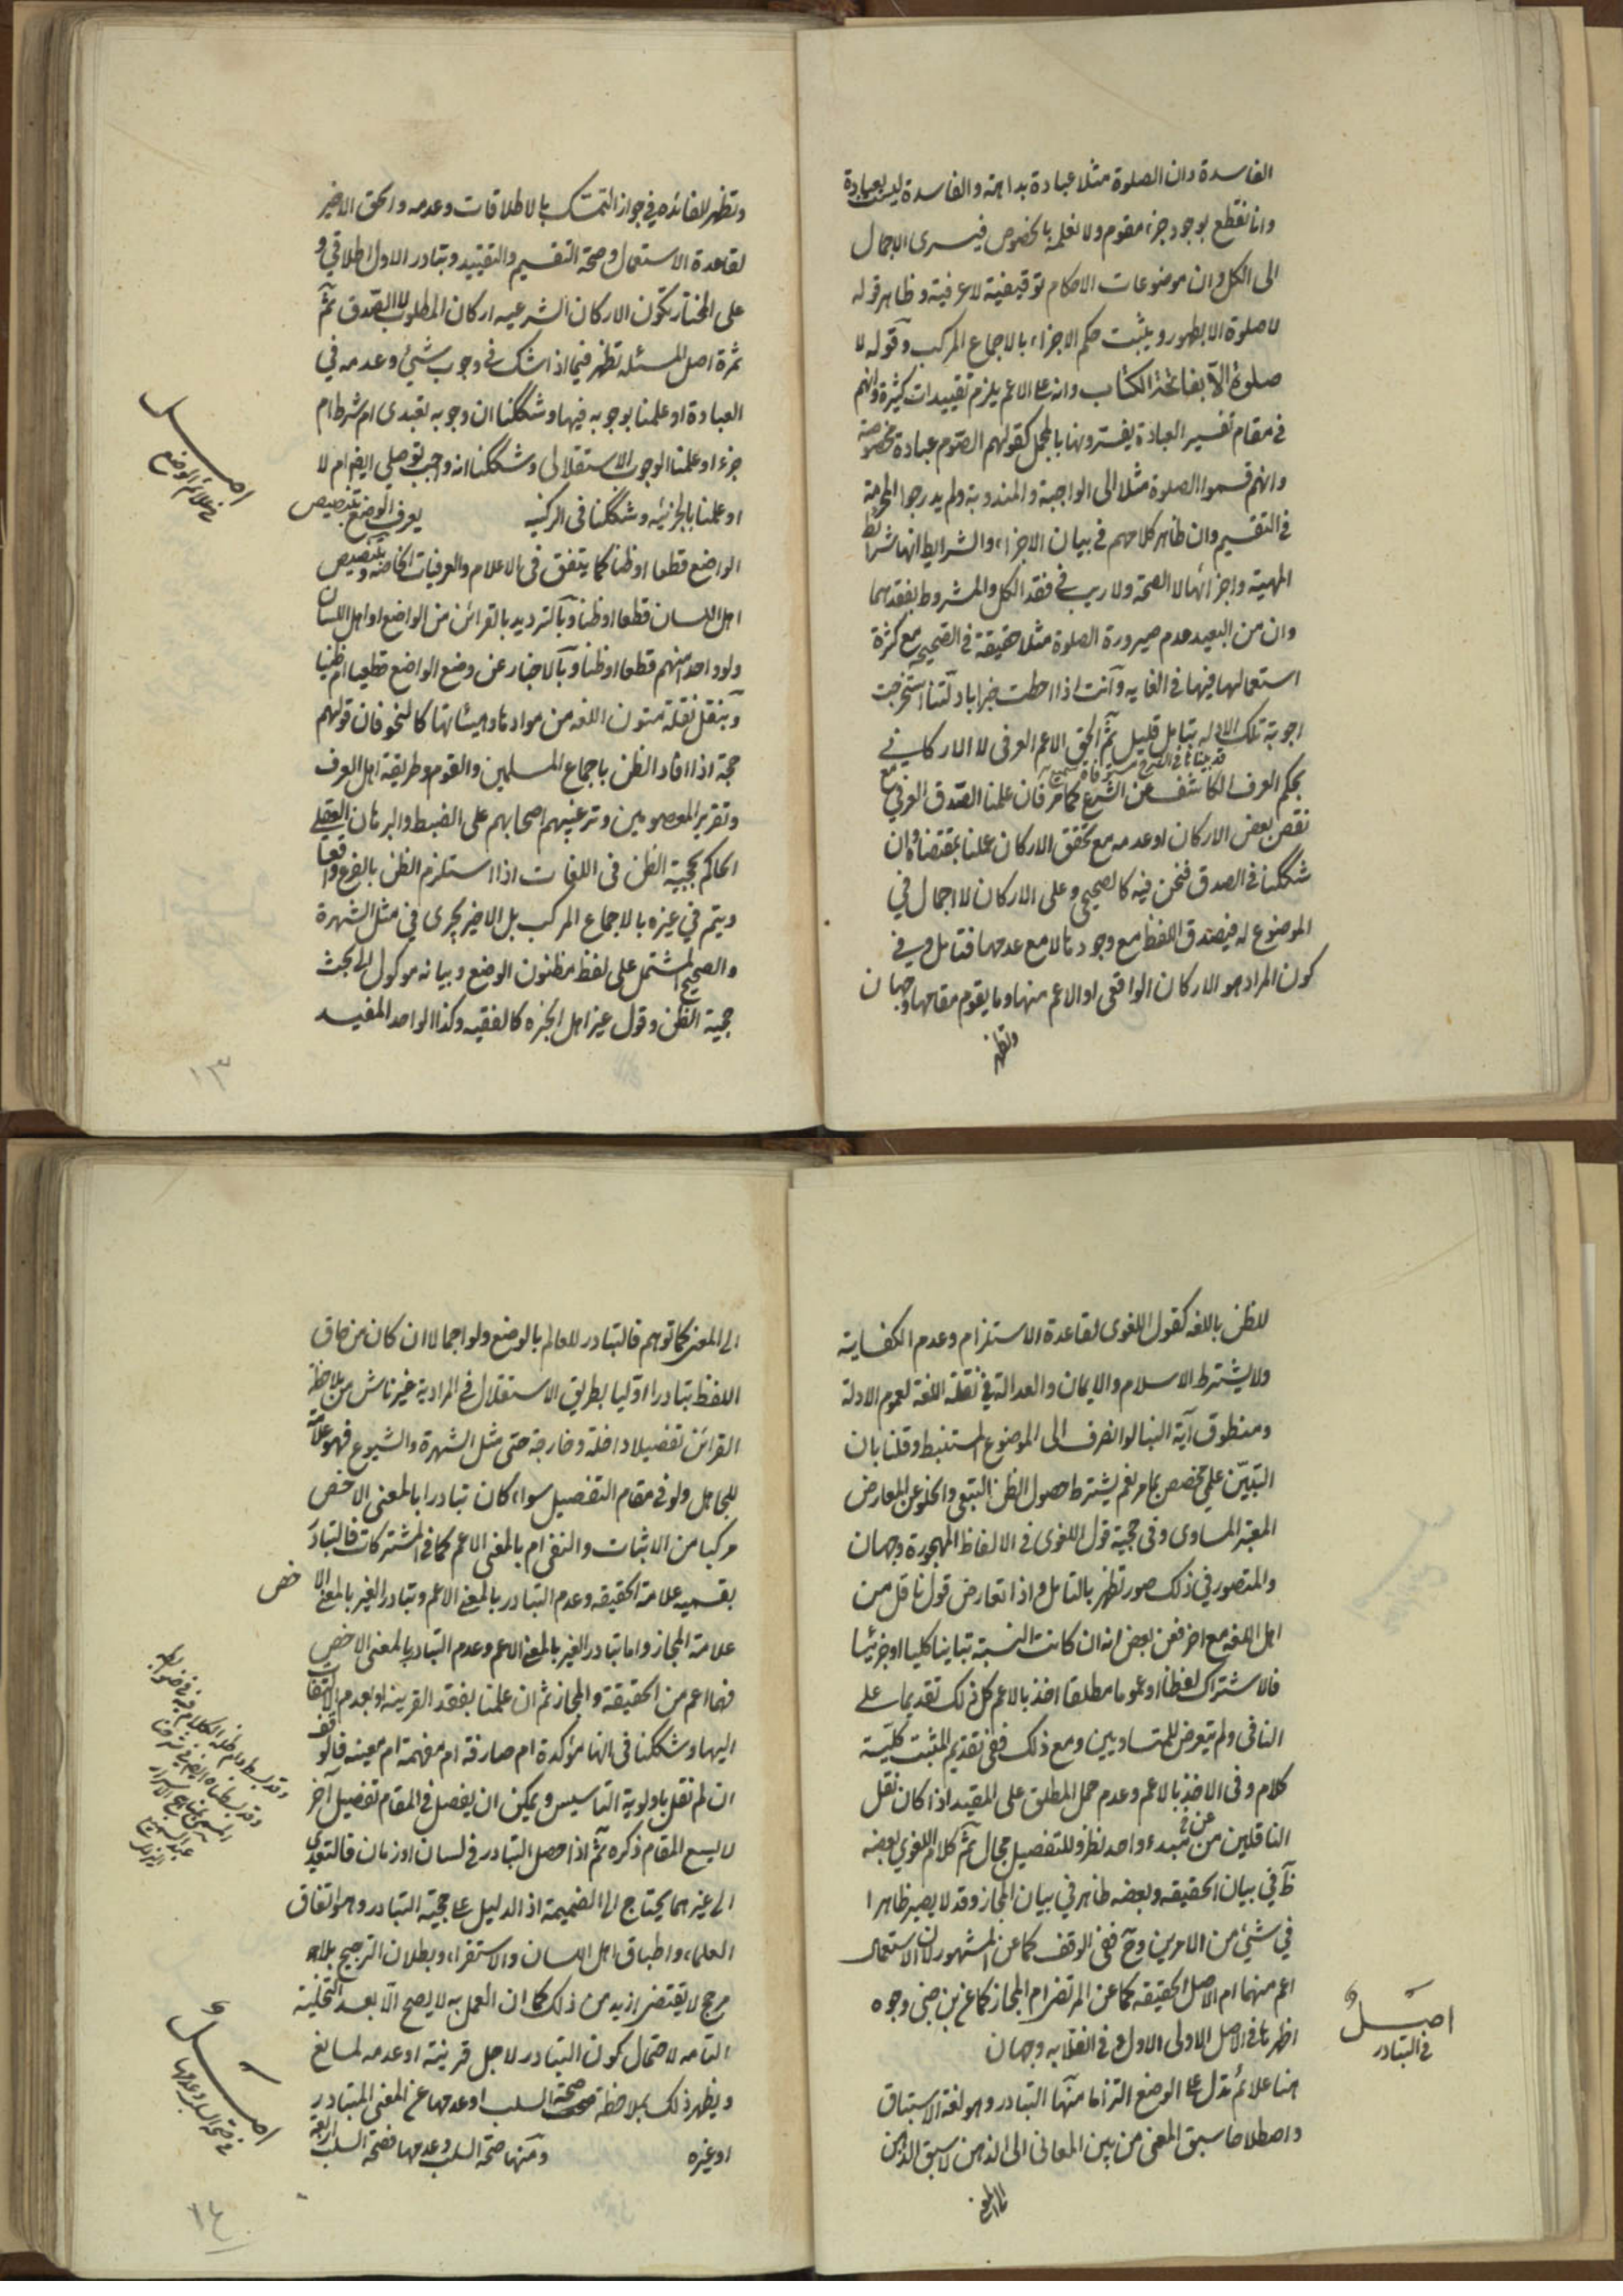 الفاسدة وان الصلوة مثلا عبادة بداهة والفاسدة ليست بعبادة
وانا نقطع بوجود جزء مقوم ولا نعلمه بالخصوص فيسرى الاجمال
الى الكل وان موضوعات الاحكام توقيفية لا عرفية وظاهر قوله
لا صلوة الا بطهور ويثبت حكم الاجزاء بالاجماع المركب وقوله لا
صلوة الا بفاتحة الكتاب وانه على الاعم يلزم تقييدات كثيرة وانهم
في مقام تفسير العبادة يفسرونها بالمجمل كقولهم الصوم عبادة مخصوصة
وانهم قسموا الصلوة مثلا الى الواجبة والمندوبة ولم يدرجوا المحرمة
في التقسيم وان ظاهر كلامهم في بيان الاجزاء والشرايط انها شرائط
المهية واجزائها لا الصحة ولا ريب في فقد الكل والمشروط بفقدهما
وان من البعيد عدم صيرورة الصلوة مثلا حقيقة في الصحيحة مع كثرة
استعمالها فيها في الغاية وانت اذا احطت خبرا بادلتنا استخرجت
اجوبة تلك الادلة بتامل قليل ثم الحق الاعم العرفى لا الاركاني
بحكم العرف الكاشف عن الشرع كما مر فان علمنا الصدق العرفي مع
نقص بعض الاركان او عدمه مع تحقق الاركان عملنا بمقتضاه وان
شككنا في الصدق فنحن فيه كالصحيحي وعلى الاركان لا اجمال في
الموضوع له فيصدق اللفظ مع وجودها لا مع عدمها فتامل وفي
كون المراد هو الاركان الواقعى او الاعم منها وما يقوم مقامها وجهان
وتظهر
وتظهر الفائدة في جواز التمسك بالاطلاقات وعدمه والحق الاخير
لقاعدة الاستعمال وصحة التقسيم والتقييد وتبادر الاول اطلاقي و
على المختار تكون الاركان الشرعيه اركان المطلوب لا الصدق ثم
ثمرة اصل المسئلة تظهر فيما اذا شك في وجوب شيئ وعدمه في
العبادة او علمنا بوجوبه فيها وشككنا ان وجوبه تعبدى ام شرط ام
جزء او علمنا الوجوب الاستقلالى وشككنا انه واجب توصلي ايضا ام لا
او علمنا بالجزئيه وشككنا في الركنيه يعرف الوضع بتنصيص
اصل
في علائم الوضع
الواضع قطعا او ظنا كما يتفق في الاعلام والعرفيات الخاصة وبتنصيص
اهل اللسان قطعا او ظنا وبالترديد بالقرائن من الواضع او اهل اللسان
ولو واحد منهم قطعا او ظنا وبالاخبار عن وضع الواضع قطعيا ام ظنيا
وبنقل نقلة متون اللغه من موادها وهيئاتها كالنحو فان قولهم
حجة اذا افاد الظن باجماع المسلمين والقوم وطريقة اهل العرف
وتقرير المعصومين وترغيبهم اصحابهم على الضبط والبرهان العقلي
الحاكم بحجية الظن في اللغات اذا استلزم الظن بالفرع واقعا
ويتم في غيره بالاجماع المركب بل الاخير يجرى في مثل الشهرة
والصحيح المشتمل على لفظ مظنون الوضع وبيانه موكول الى بحث
حجية الظن وقول غير اهل الخبره كالفقيه وكذا الواحد المفيد
١٣
للظن باللغه كقول اللغوى لقاعدة الاستلزام وعدم الكفاية
ولا يشترط الاسلام والايمان والعدالة في نقلة اللغة لعموم الادلة
ومنطوق آية النبا لو انصرف الى الموضوع المستنبط وقلنا بان
التبين علمي مخصص بما مر نعم يشترط حصول الظن التتبعى والخلو عن المعارض
المعتبر المساوى وفي حجية قول اللغوى في الالفاظ المهجورة وجهان
والمتصور في ذلك صور تظهر بالتامل واذا تعارض قول ناقل من
اهل اللغه مع اخر فعن بعض انه ان كانت النسبة تباينا كليا او جزئيا
فالاشتراك لفظا او عموما مطلقا اخذ بالاعم كل ذلك تقديما على
النافى ولم يتعرض للمتساويين ومع ذلك ففي تقديم المثبت كلية
كلام وفي الاخذ بالاعم وعدم حمل المطلق على المقيد اذا كان نقل
الناقلين عن مبدء واحد نظر وللتفصيل مجال ثم كلام اللغوي بعضه
ظ في بيان الحقيقه وبعضه ظاهر في بيان المجاز وقد لا يصير ظاهرا
في شيئ من الامرين وح ففي الوقف كما عن المشهور لان الاستعمال
اعم منهما ام الاصل الحقيقه كما عن المرتضى ام المجاز كما عن بن جنى وجوه
اظهرها في الاصل الاولى الاول وفي انقلابه وجهان
اصل
في التبادر
هنا علائم تدل على الوضع التزاما منها التبادر وهو لغة الاستباق
واصطلاحا سبق المعنى من بين المعانى الى الذهن لا سبق الذهن
الى المعنى
الى المعنى كما توهم فالتبادر للعالم بالوضع ولو اجمالا ان كان من حاق
اللفظ تبادرا اوليا بطريق الاستقلال في المرادية غير ناش من ملاحظة
القرائن تفصيلا داخلة وخارجة حتى مثل الشهرة والشيوع فهو علامة
للجاهل ولو في مقام التفصيل سواء كان تبادرا بالمعنى الاخص
مركبا من الاثبات والنفى ام بالمعنى الاعم كما في المشتركات فالتبادر
بقسميه علامة الحقيقه وعدم التبادر بالمعنى الاعم وتبادر الغير بالمعنى الاخص
علامة المجاز واما تبادر الغير بالمعنى الاعم وعدم التبادر بالمعنى الاخص
فهما اعم من الحقيقة والمجاز ثم ان علمنا بفقد القرينه او بعدم الالتفات
اليها وشككنا في انها مؤكدة ام صارفة ام مفهمة ام معينه فالوقف
ان لم نقل باولوية التاسيس ويمكن ان يفصل في المقام تفصيل آخر
لا يسع المقام ذكره ثم اذا حصل التبادر في لسان او زمان فالتعدي
الى غيرهما يحتاج الى الضميمة اذ الدليل على حجية التبادر وهو اتفاق
العلماء واطباق اهل اللسان والاستقراء وبطلان الترجيح بلا
مرجح لا يقتضى ازيد من ذلك كما ان العمل به لا يصح الا بعد التخلية
التامه لاحتمال كون التبادر لاجل قرينة او عدمه لمانع
ويظهر ذلك بملاحظة صحة السلب او عدمها عن المعنى المتبادر
او غيره ومنها صحة السلب وعدمها فصحة السلب
اصل
في صحة السلب وعدمها
١٤